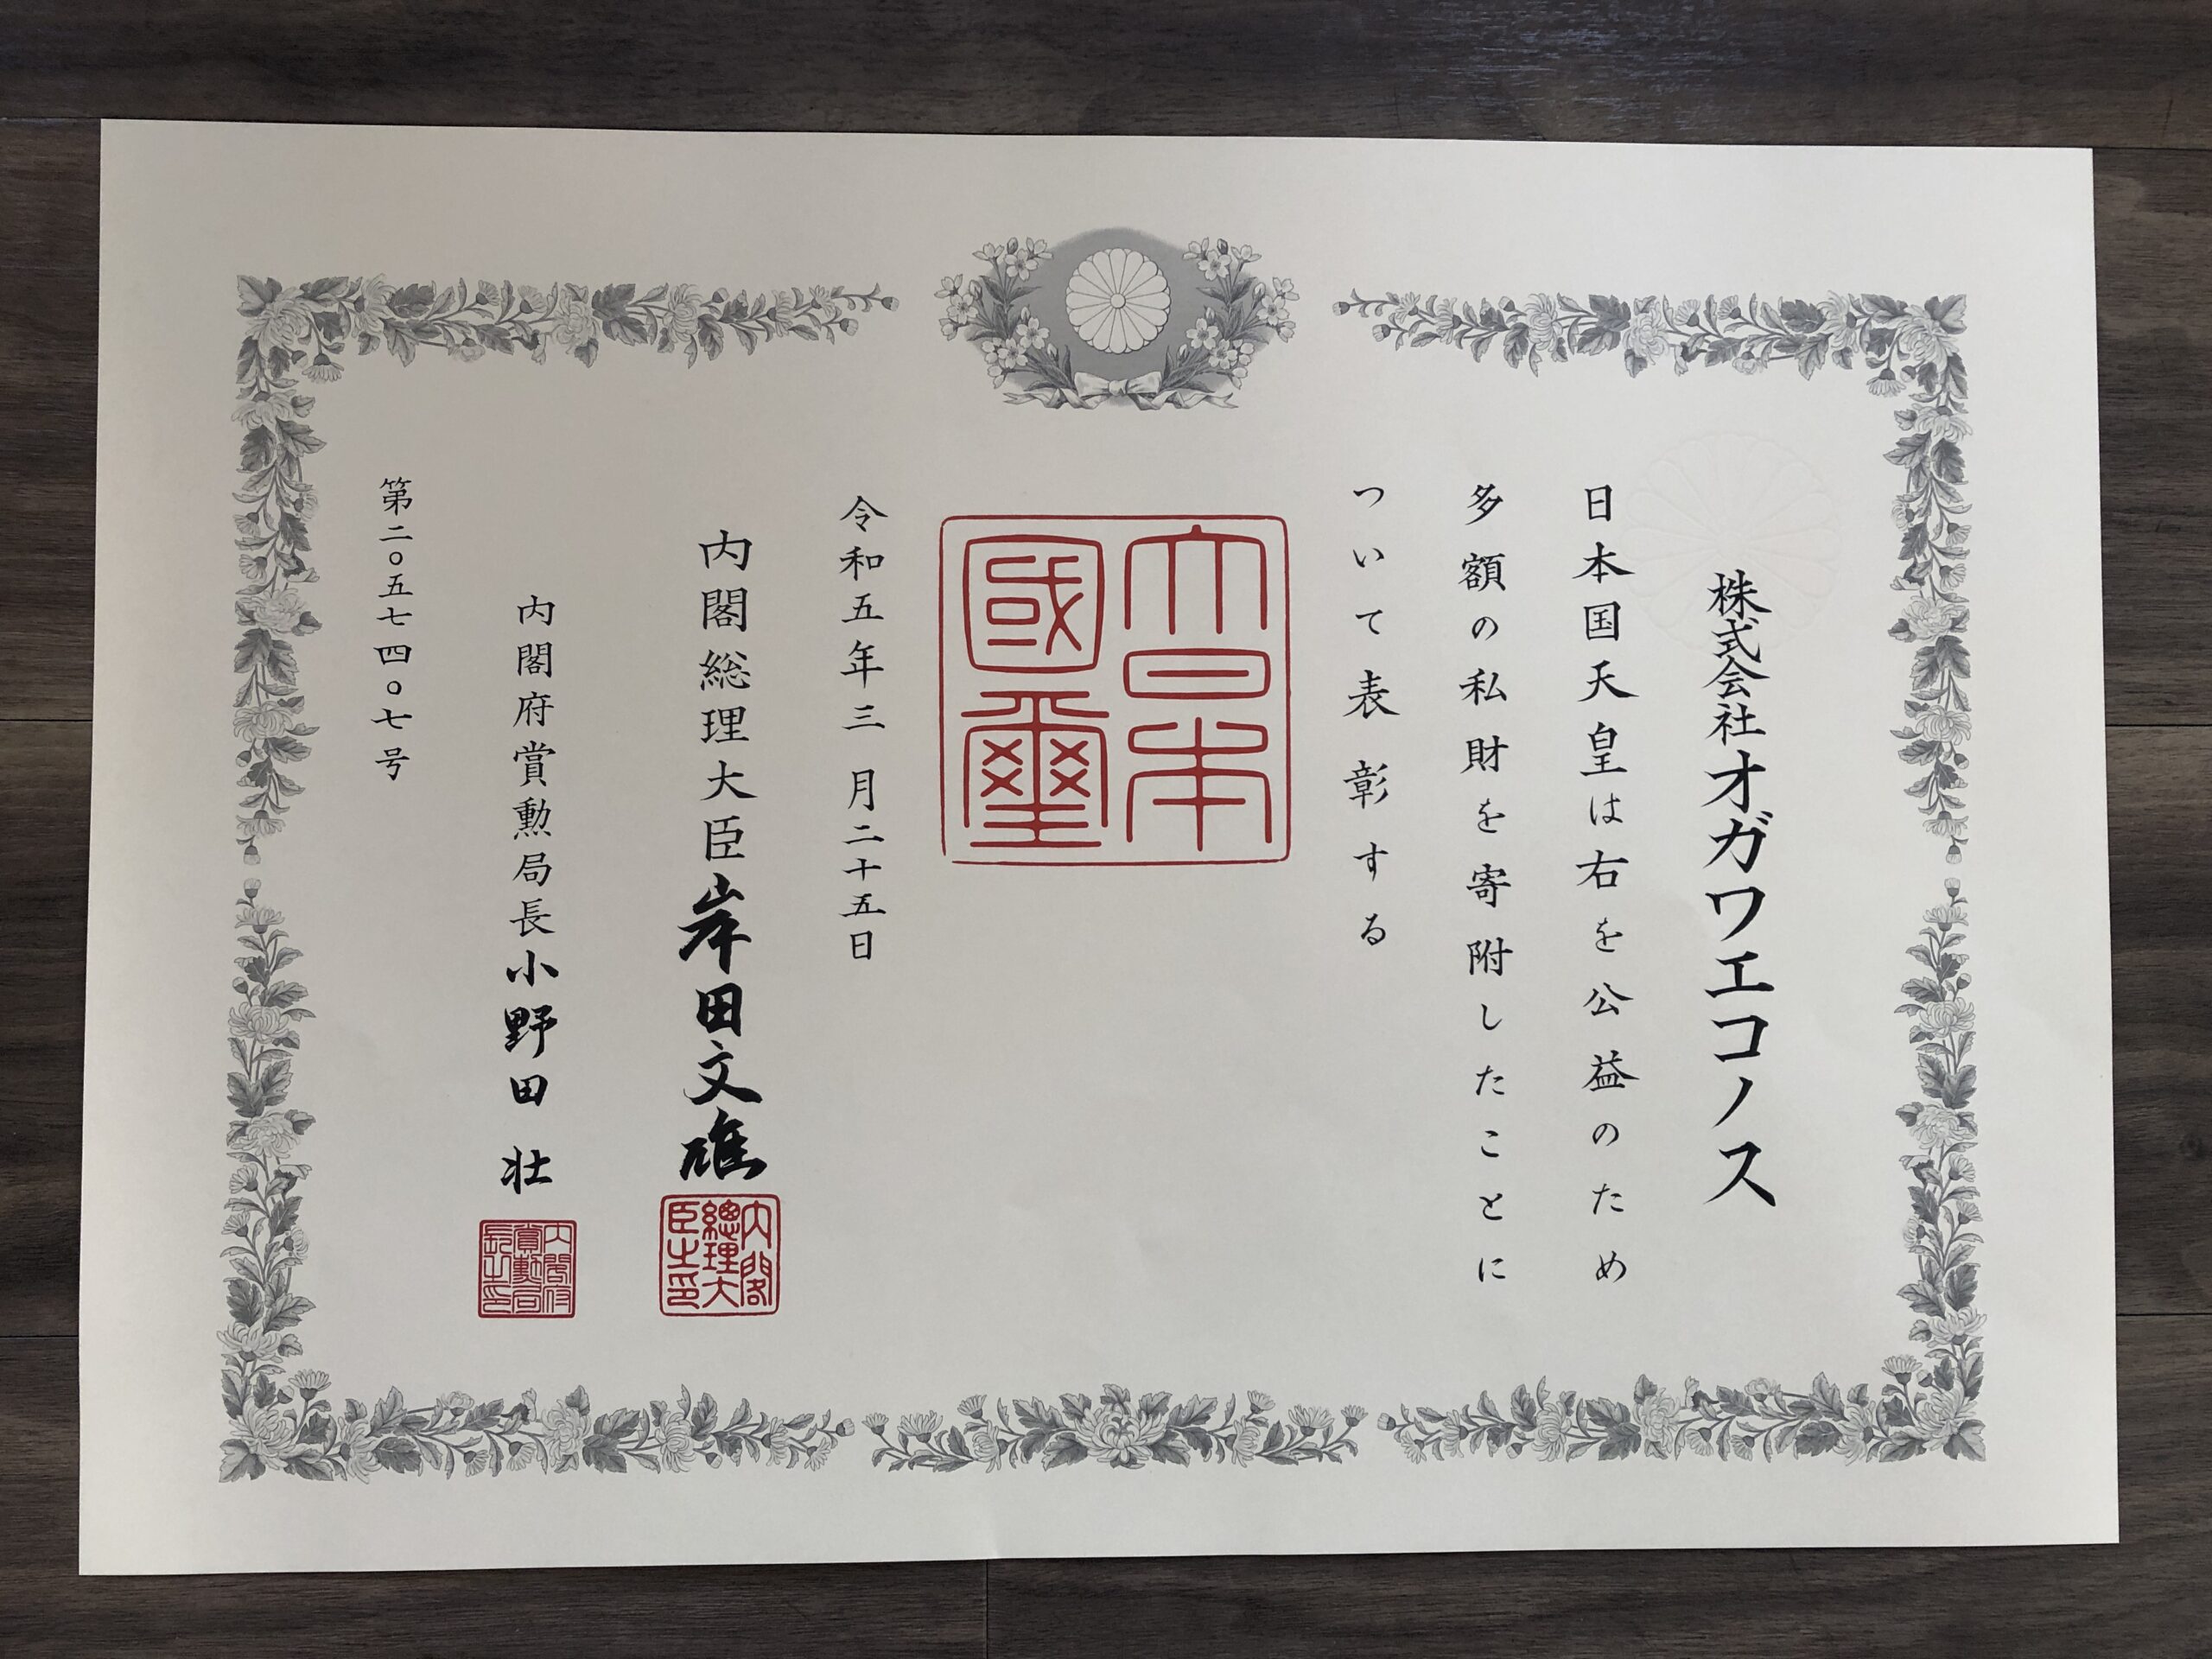 株式会社オガワエコノス
日本国天皇は右を公益のため
多額の私財を寄附したことに
ついて表彰する
大日本國璽
令和五年三月二十五日
内閣総理大臣岸田文雄
内閣總理大臣之印
内閣府賞勲局長小野田壮
内閣府賞勳局長之印
第二〇五七四〇七号